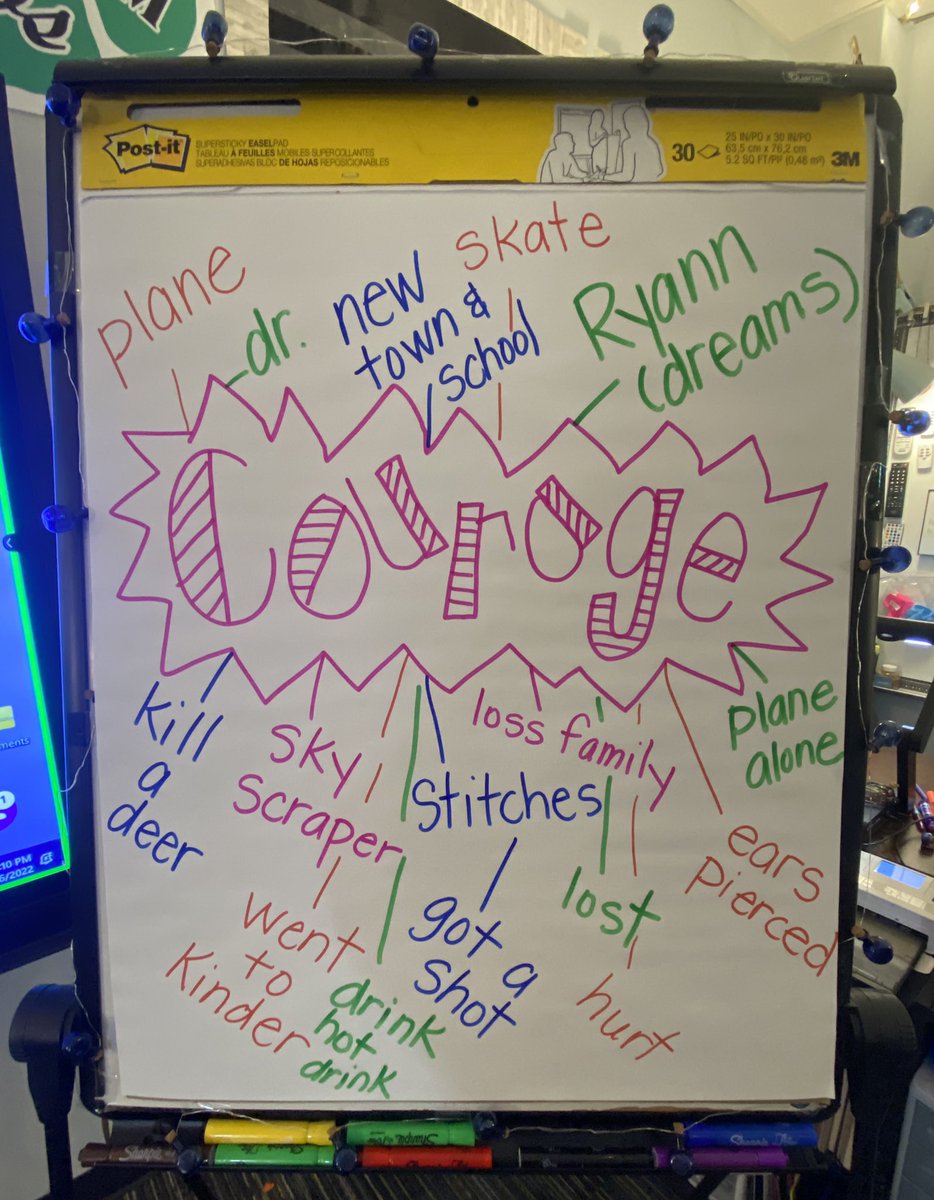 Quartet
Post-it
SUPERSTICKY EASELPAD
TABLEAU À FEUILLES MOBILES SUPERCOLLANTES
SUPERADHESIVAS BLOC DE HOJAS REPOSICIONABLES
30
25 IN/PD x 30 IN/PD
63,5 cm x 76,2 cm
5.2 SQ FT/PI² (0,48 m²)
3M
plane
dr.
new
town &
school
skate
Ryann
(dreams)
Courage
kill
a
deer
sky
scraper
stitches
loss family
plane
alone
ears
pierced
went
to
kinder
drink
hot
drink
got a
shot
lost
hurt
ments
1
:10 PM
6/2022
Sharpie
Sharpie
Sharpie